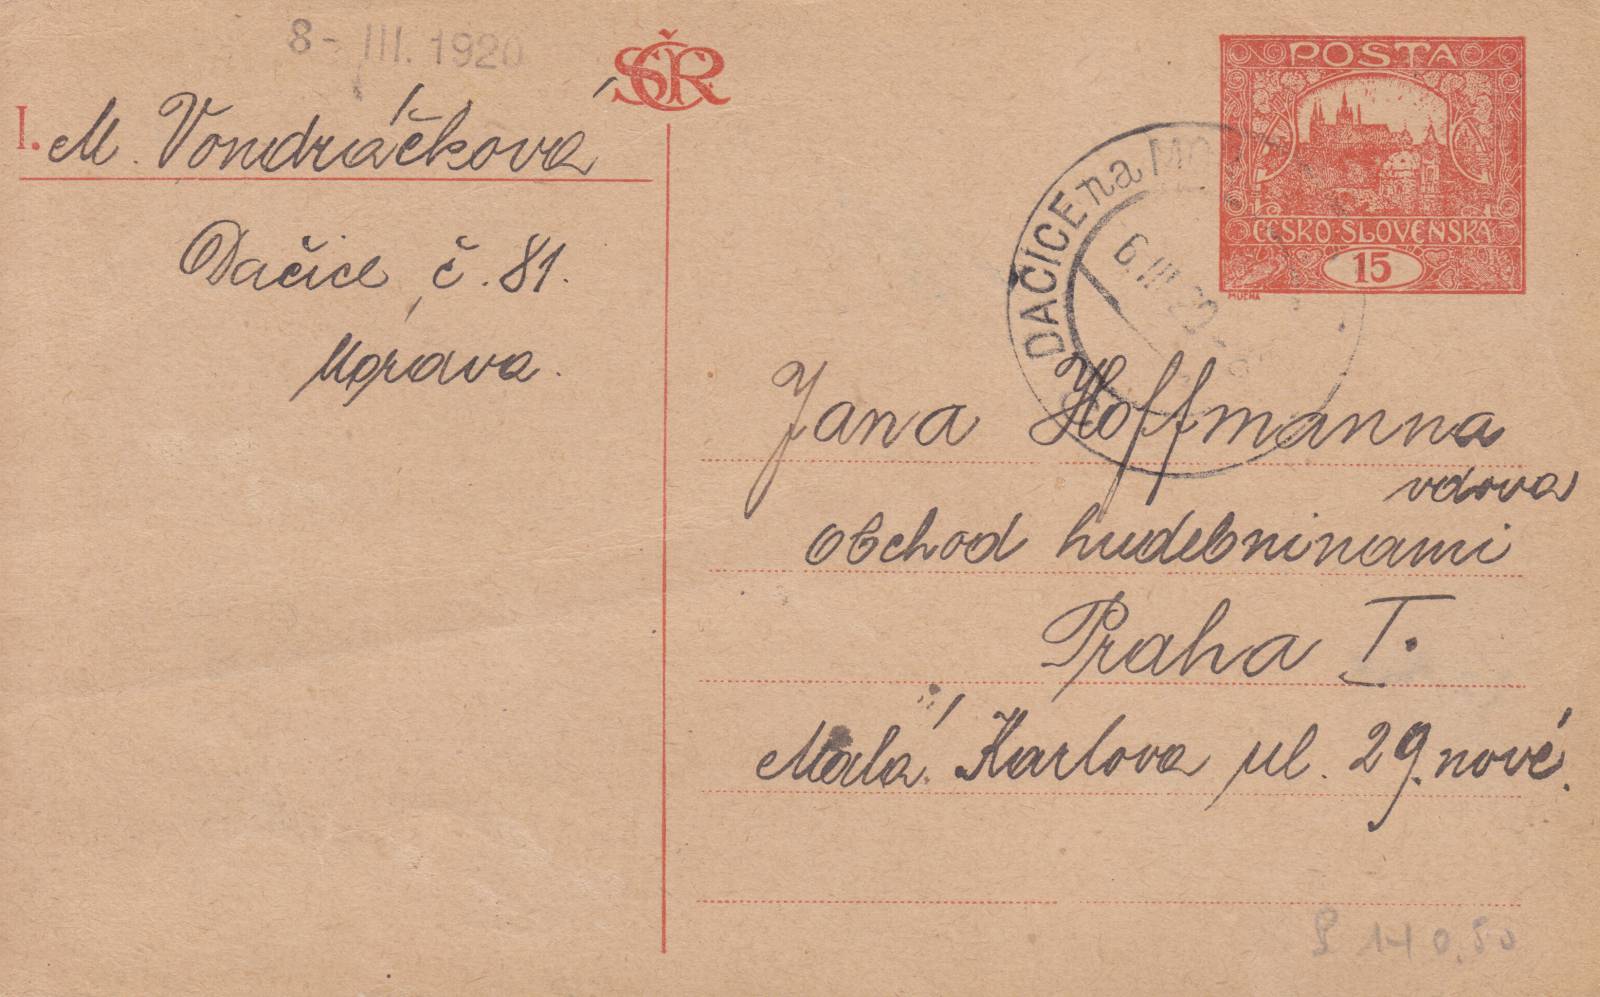 8- III. 1920
ČSR
I. M. Vondráčková
Dačice č. 81.
Morava.
POSTA
ČESKO·SLOVENSKÁ
15
MUCHA
DAČICE na MOR
6.III.20
Jana Hoffmanna
vdova
obchod hudebninami
Praha I.
Malá Karlova ul. 29. nové.